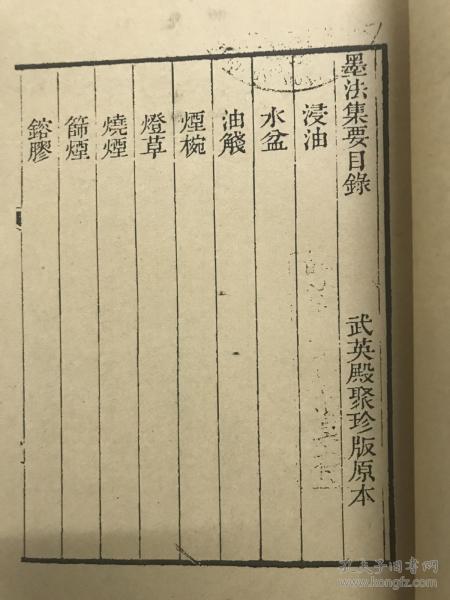 墨法集要目錄 武英殿聚珍版原本
浸油
水盆
油醆
煙椀
燈草
燒煙
篩煙
鎔膠
孔夫子旧书网
www.kongfz.com